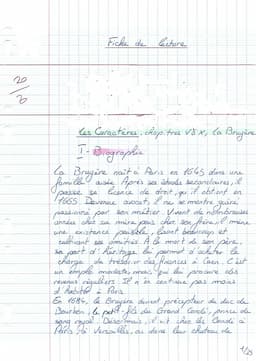 Fiche de lecture
20
Les Caractères, chapitres V à X, la Bruyère
I - Biographie
La Bruyère naît à Paris en 1645 dans une
famille aisée. Après ses études secondaires, il
passe sa licence de droit, qu'il obtient en
1665. Devenu avocat, il ne se montre guère
passionné par son métier. Vivant de nombreuses
années chez sa mère puis chez son frère, il mène
une existence paisible, lisant beaucoup et
cultivant ses amitiés. A la mort de son père,
sa part d'héritage lui permet d'acheter la
charge de trésorier des finances à Caen. C'est
un emploi modeste, mais qui lui procure des
revenus réguliers. Il n'en continue pas moins
d'habiter à Paris.
En 1684, la Bruyère devient précepteur du duc de
Bourbon, le petit-fils du Grand Condé, prince du
sang royal. Désormais, il vit chez les Condé à
Paris, à Versailles, ou dans leur château de